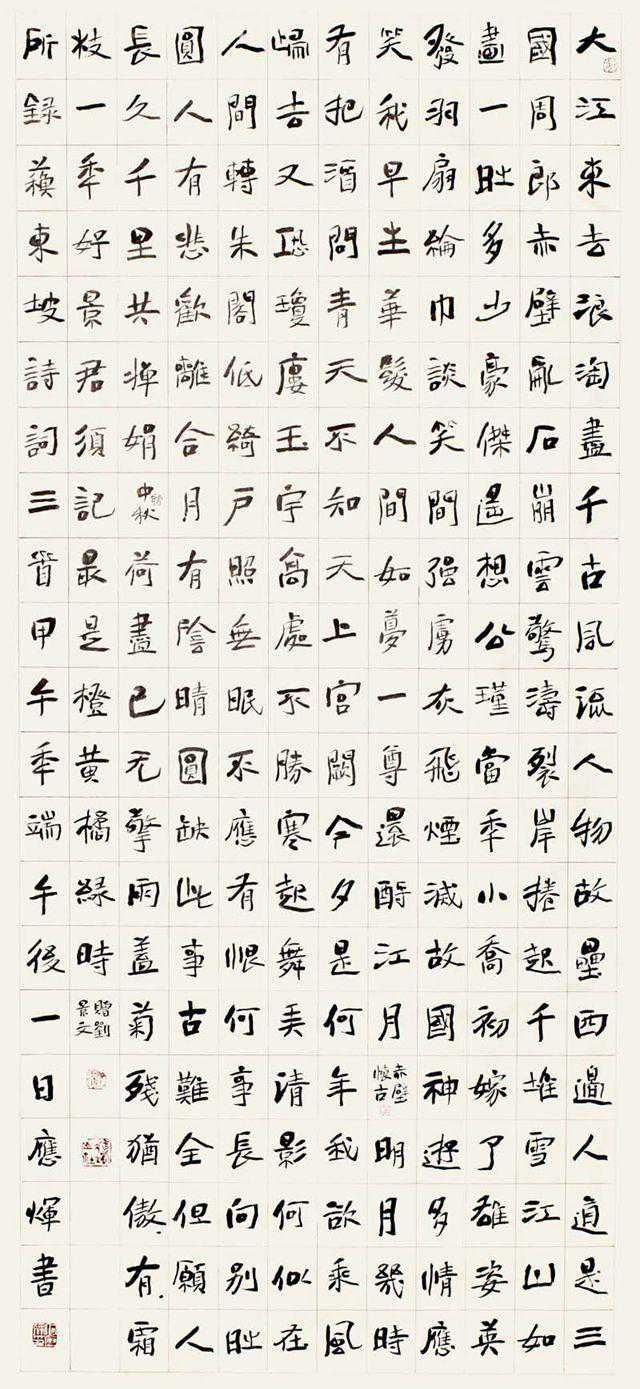 大江東去浪淘盡千古風流人物故壘西邊人道是三
國周郎赤壁亂石崩雲驚濤裂岸捲起千堆雪江山如
畫一時多少豪傑遥想公瑾當年小喬初嫁了雄姿英
發羽扇綸巾談笑間强虜灰飛煙滅故國神遊多情應
笑我早生華髮人間如夢一尊還酹江月赤壁懷古明月幾時
有把酒問青天不知天上宮闕今夕是何年我欲乘風
歸去又恐瓊廔玉宇高處不勝寒起舞弄清影何似在
人間轉朱閣低綺户照無眠不應有恨何事長向別時
圓人有悲歡離合月有陰晴圓缺此事古難全但願人
長久千里共嬋娟中秋荷盡已无擎雨蓋菊殘猶傲有霜
枝一年好景君須記最是橙黃橘緑時贈劉景文
所録蘇東坡詩詞三首甲午年端午後一日應煇書